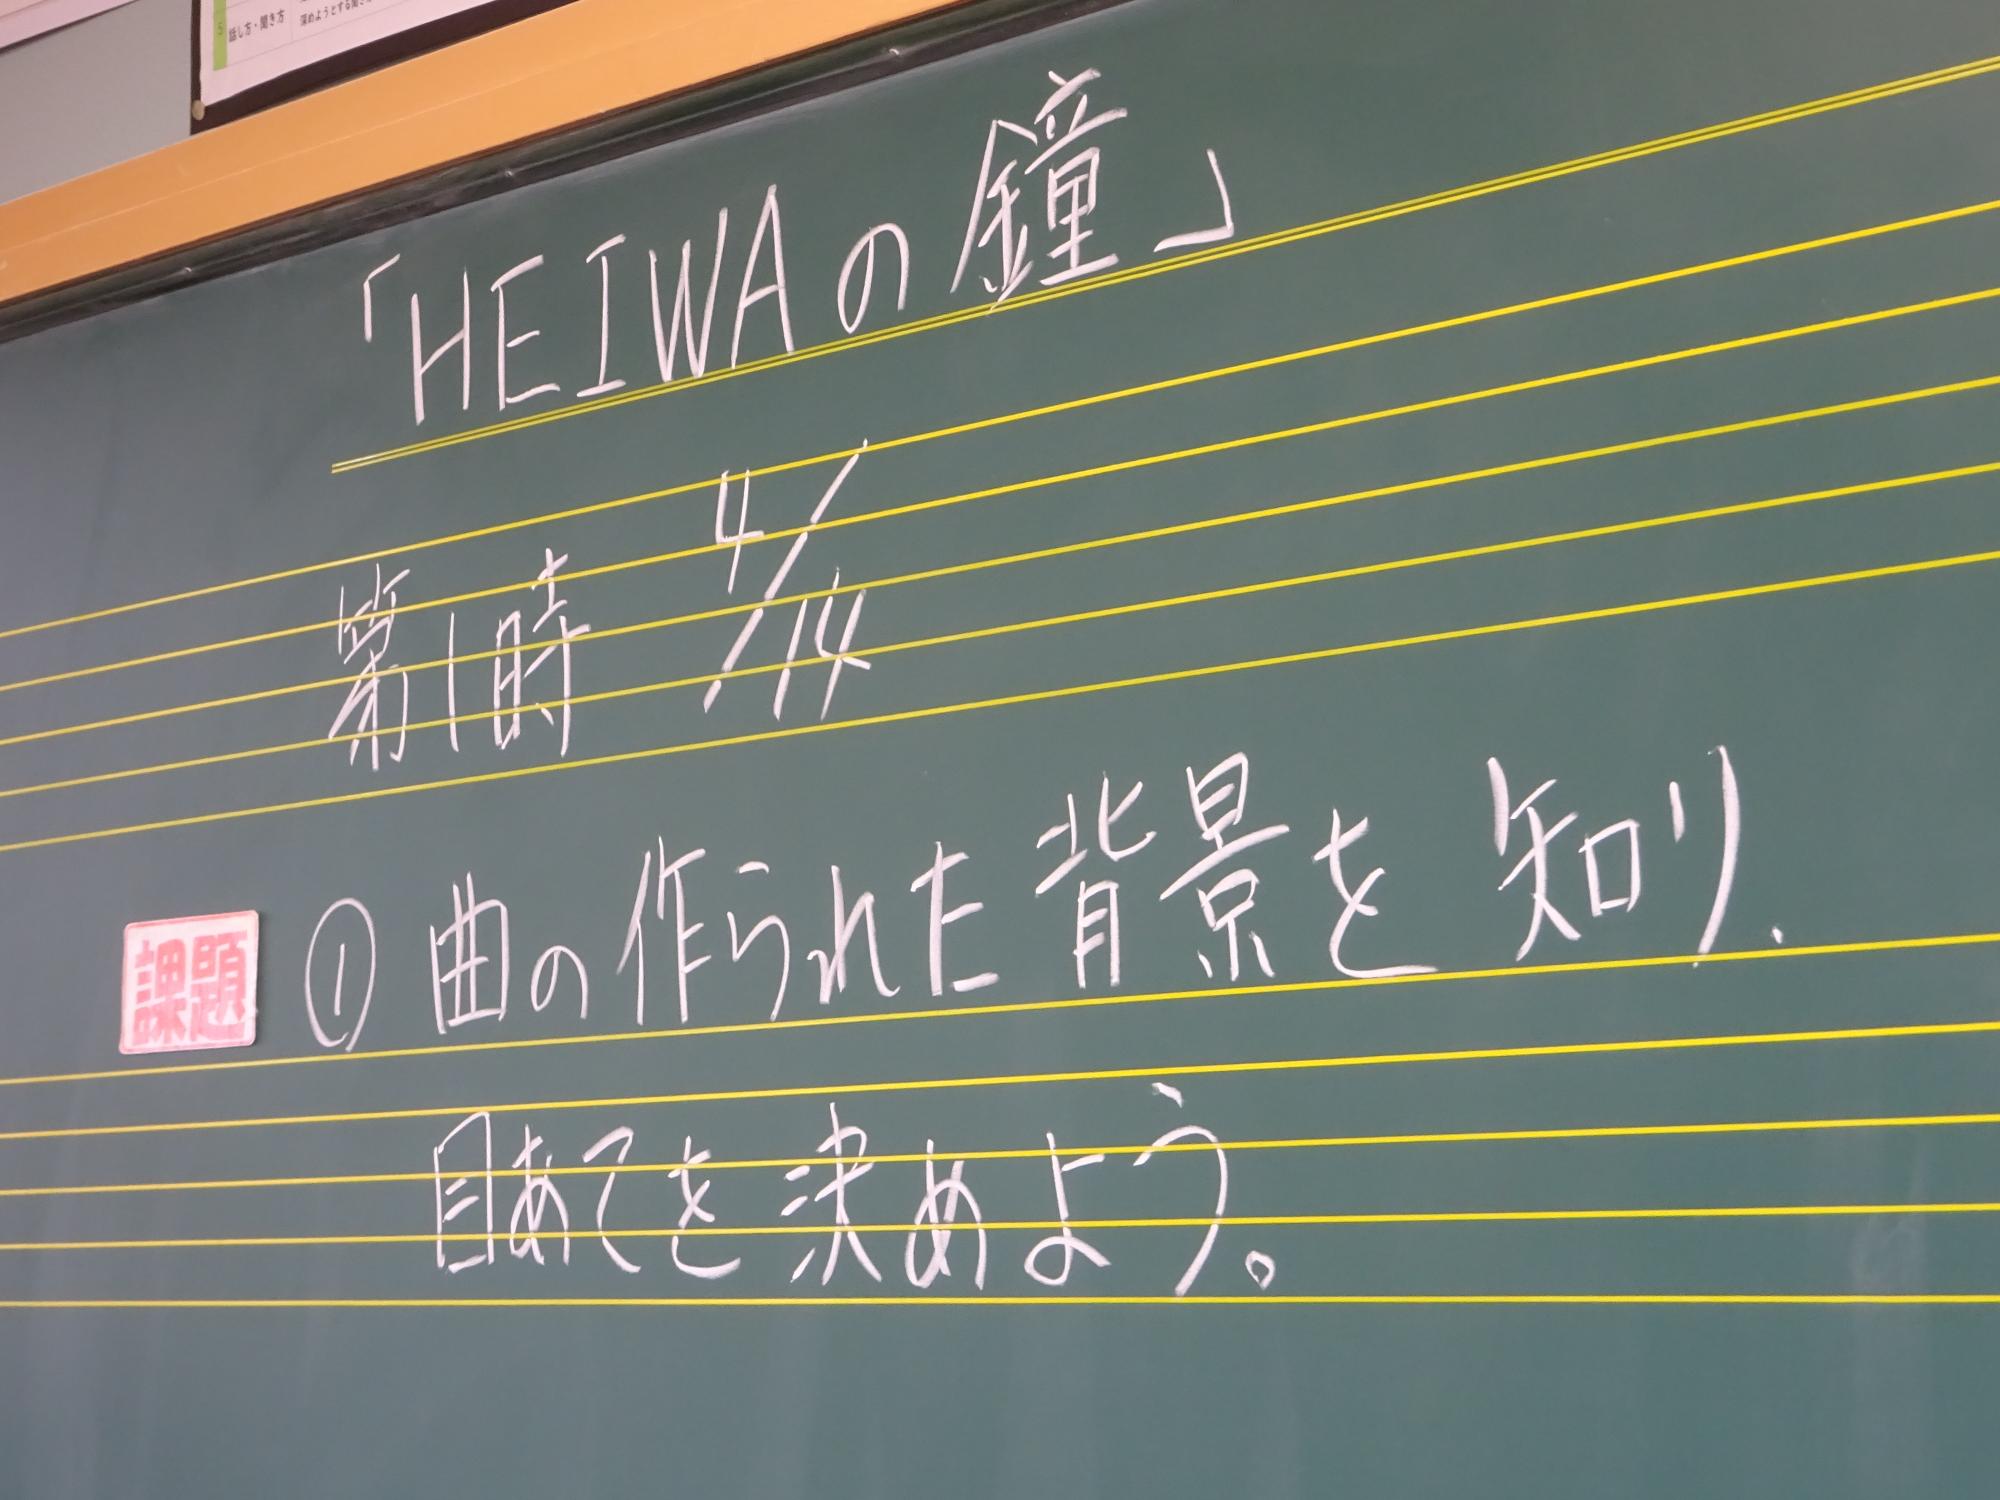 5 話し方・聞き方
「HEIWAの鐘」
第1時 4/14
課題 ① 曲の作られた背景を知り、
目あてを決めよう。